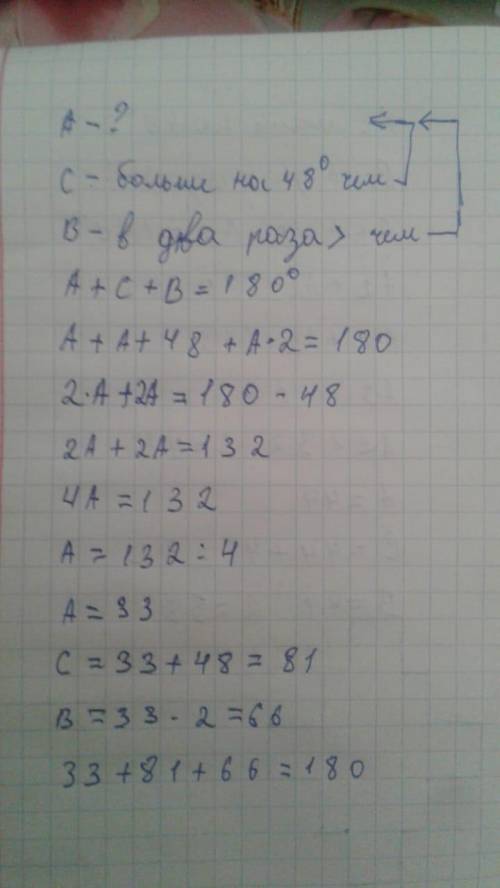 А - ?
С - больше на 48° чем
В - в два раза > чем
А + С + В = 180°
А + А + 48 + А · 2 = 180
2 · А + 2А = 180 - 48
2А + 2А = 132
4А = 132
А = 132 : 4
А = 33
С = 33 + 48 = 81
В = 33 · 2 = 66
33 + 81 + 66 = 180